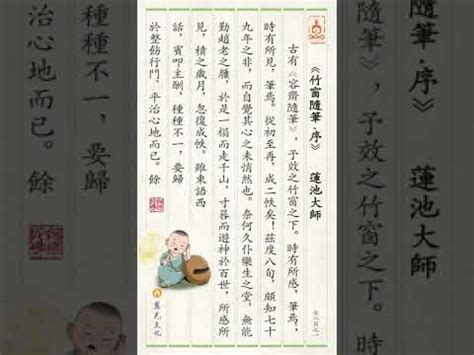 隨筆·序》 蓮池大師
》，予效之竹窗之下。時
《竹窗隨筆·序》 蓮池大師
古有《容齋隨筆》，予效之竹窗之下。時有所感，筆焉，
時有所見，筆焉。從初至再，成二帙矣！茲度八旬，頗知七十
九年之非，而自覺其心之未悄然也。奈何久仆樂生之堂，無能
勤趙老之腰，於是一榻而走千山，寸晷而遊神於百世，所感所
見，積之歲月，忽復成帙。雖東語西
話，賓叩主酬，種種不一，要歸
於整飭行門，平治心地而已。餘
慧光文化
種種不一，要歸
治心地而已。餘